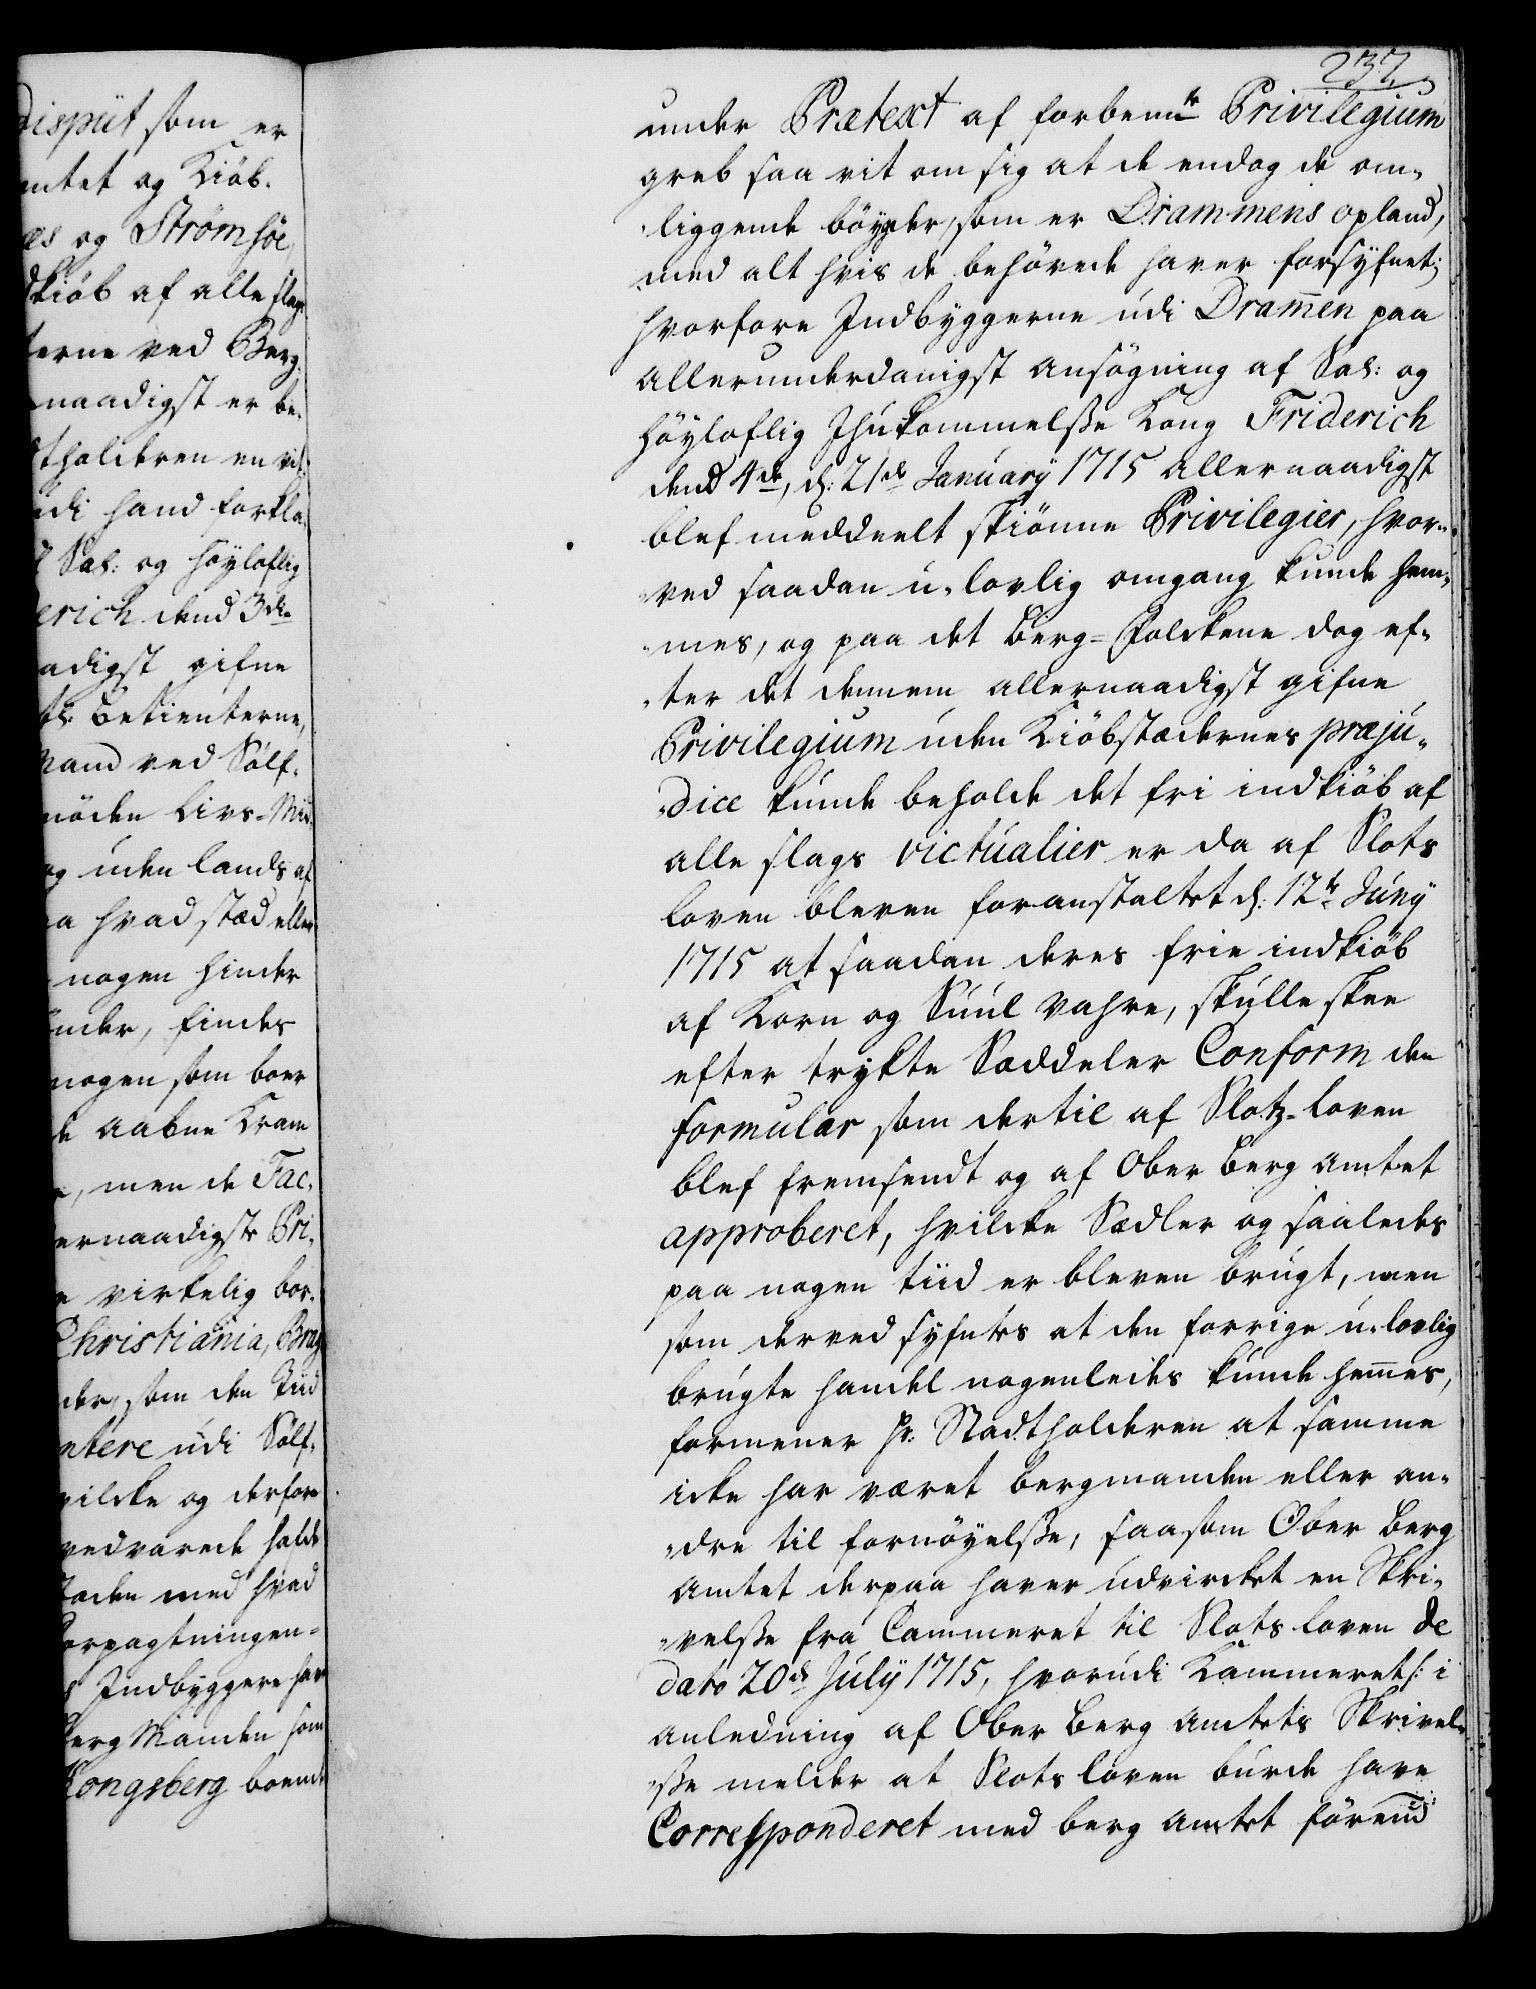 disput som er
mtet og Kiöb-
es og Strømsöe
dkiöb af alle slags
terne ved Berg
naadigst er be-
tholderen en vit
udi hand forkla
Sal: og höyloflig
erich dend 3die
adigst gifne
betienterne,
mand ved Sölf-
nöden Livs-Mid
og uden lands af
a hvad stæd eller
nogen hinder
under, findes
nogen som boer
de aabne Kram
, men de Fac-
ernaadigste Pri-
virkelig bor-
Christiania, Brag
der, som den Tiid
ntere udi Sölf-
vilcke og derfore
vedvarede holde
staden med hvad
orpagtningen-
s Indbyggere har
Berg Manden som
Kongsberg boende
237
under Prætext af forbemte Privilegium
greb saa vit om sig at de endog de om-
liggende böyder, som er Drammens opland,
med alt hvis de behövede haver forsyfnet;
hvorfore Indbyggerne udi Dramen paa
allerunderdanigst ansögning af Sal: og
höyloflig Ihukommelsse Kong Friderich
dend 4de, d: 21de January 1715 allernaadigst
blef meddeelt skiönne Privilegier, hvor-
ved saadan u-lovlig omgang kunde hem-
mes, og paa det Berg=Folckene dog ef-
ter det dennem allernaadigst gifne
Privilegium uden Kiöbstædernes præju-
dice kunde beholde det fri indkiöb af
alle slags victualier er da af Slots
loven bleven foranstaltet d: 12te Juny
1715 at saadan deres frie indkiöb
af Korn og Suul vahre, skulle skee
efter trykte Sæddeler Conform den
formular som dertil af Slotz-loven
blef fremsendt og af Ober Berg Amtet
approberet, hvilcke Sædler og saaledes
paa nogen tiid er bleven brugt, men
som derved syfntes at den forrige u-lovlig
brugte handel nogenledes kunde hemes,
formener Hr. Stadtholderen at samme
icke har været bergmanden eller an-
dre til fornöyelsse, saasom Ober Berg
Amtet derpaa haver udvircket en Skri-
velsse fra Cammeret til Slots loven de
dato 20de July 1715, hvorudi Kammeret /: i
anledning af Ober Berg Amtets Skrivel-
sse melder at Slots loven burde have
Corresponderet med berg Amtet förend